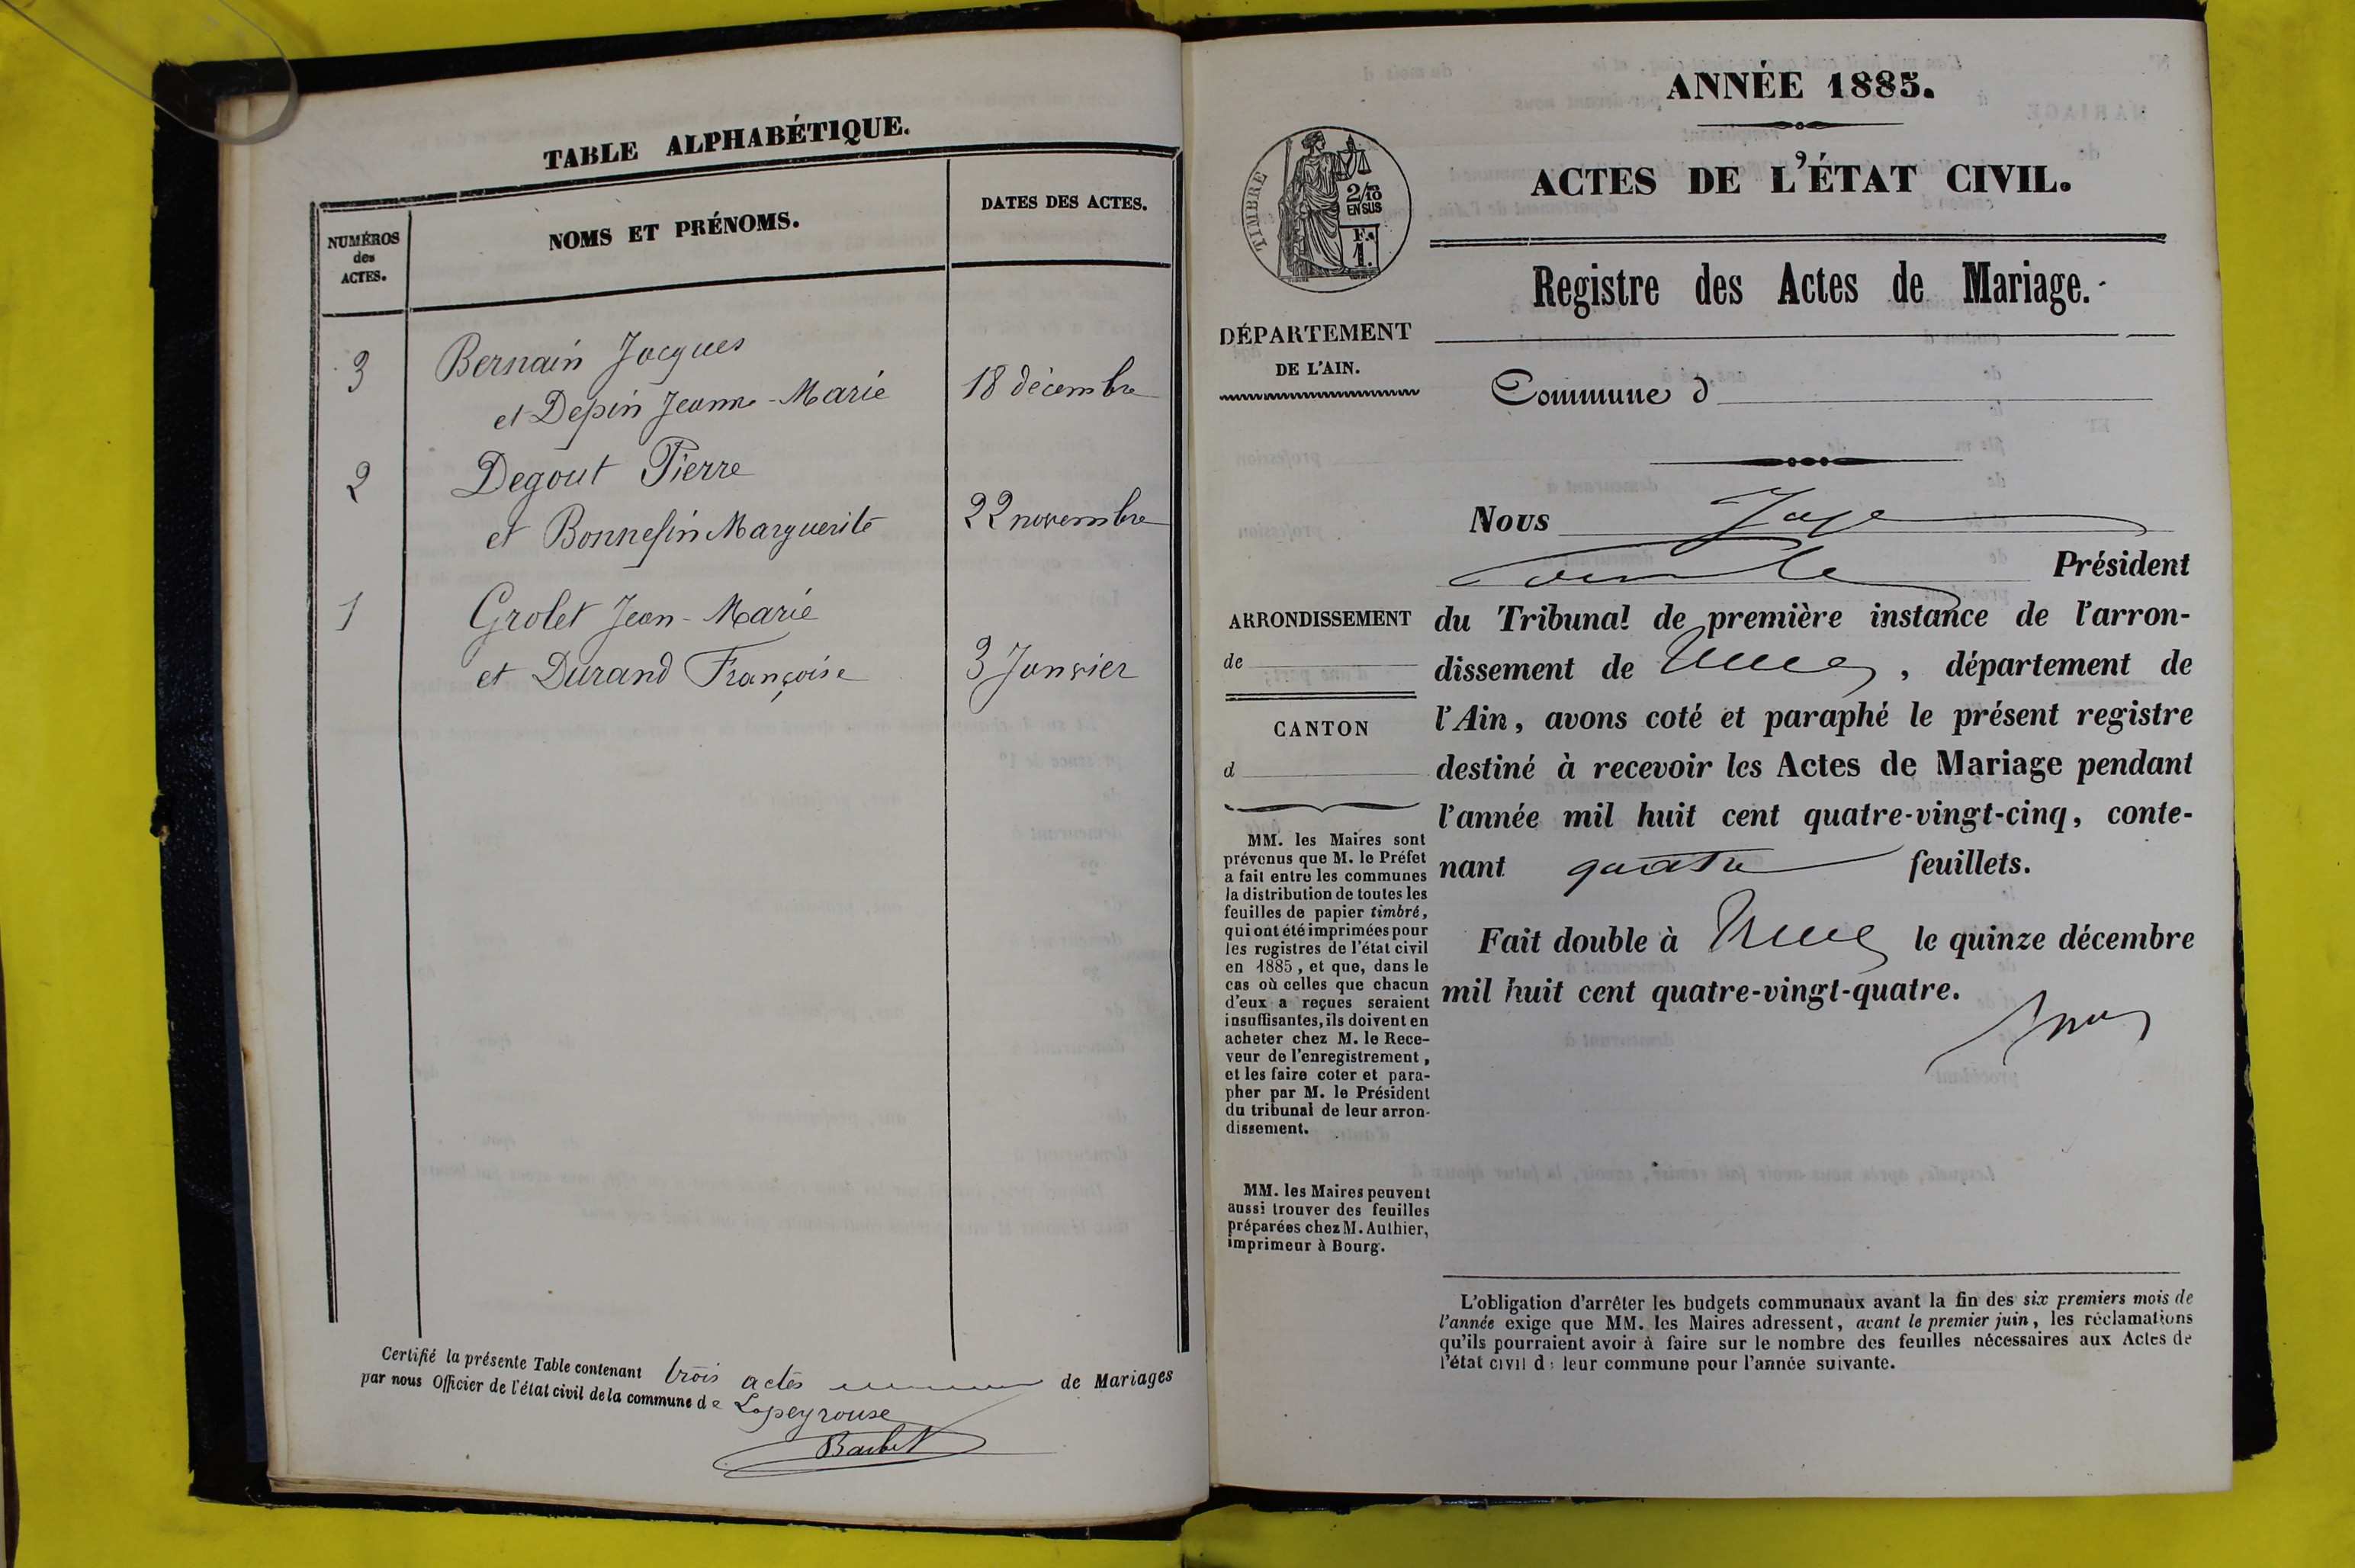 TABLE ALPHABÉTIQUE.
NUMÉROS
des
ACTES.
NOMS ET PRÉNOMS.
DATES DES ACTES.
3
Bernain Jacques
et Depin Jeanne-Marie
18 décembre
2
Degout Pierre
et Bonnefin Marguerite
22 novembre
1
Grolet Jean-Marie
et Durand Françoise
3 Janvier
Certifié la présente Table contenant trois actes de Mariages
par nous Officier de l'état civil de la commune de Lapeyrouse
Barbet
ANNÉE 1885.
ACTES DE L'ÉTAT CIVIL.
TIMBRE
2/10
EN SUS
F.
1.
Registre des Actes de Mariage.
DÉPARTEMENT
DE L'AIN.
Commune d
Nous Juge
Président
ARRONDISSEMENT
de
CANTON
d
du Tribunal de première instance de l'arron-
dissement de , département de
l'Ain, avons coté et paraphé le présent registre
destiné à recevoir les Actes de Mariage pendant
l'année mil huit cent quatre-vingt-cinq, conte-
nant quatre feuillets.
Fait double à le quinze décembre
mil huit cent quatre-vingt-quatre.
MM. les Maires sont
prévenus que M. le Préfet
a fait entre les communes
la distribution de toutes les
feuilles de papier timbré,
qui ont été imprimées pour
les registres de l'état civil
en 1885, et que, dans le
cas où celles que chacun
d'eux a reçues seraient
insuffisantes, ils doivent en
acheter chez M. le Rece-
veur de l'enregistrement,
et les faire coter et para-
pher par M. le Président
du tribunal de leur arron-
dissement.
MM. les Maires peuvent
aussi trouver des feuilles
préparées chez M. Authier,
imprimeur à Bourg.
L'obligation d'arrêter les budgets communaux avant la fin des six premiers mois de
l'année exige que MM. les Maires adressent, avant le premier juin, les réclamations
qu'ils pourraient avoir à faire sur le nombre des feuilles nécessaires aux Actes de
l'état civil d: leur commune pour l'année suivante.